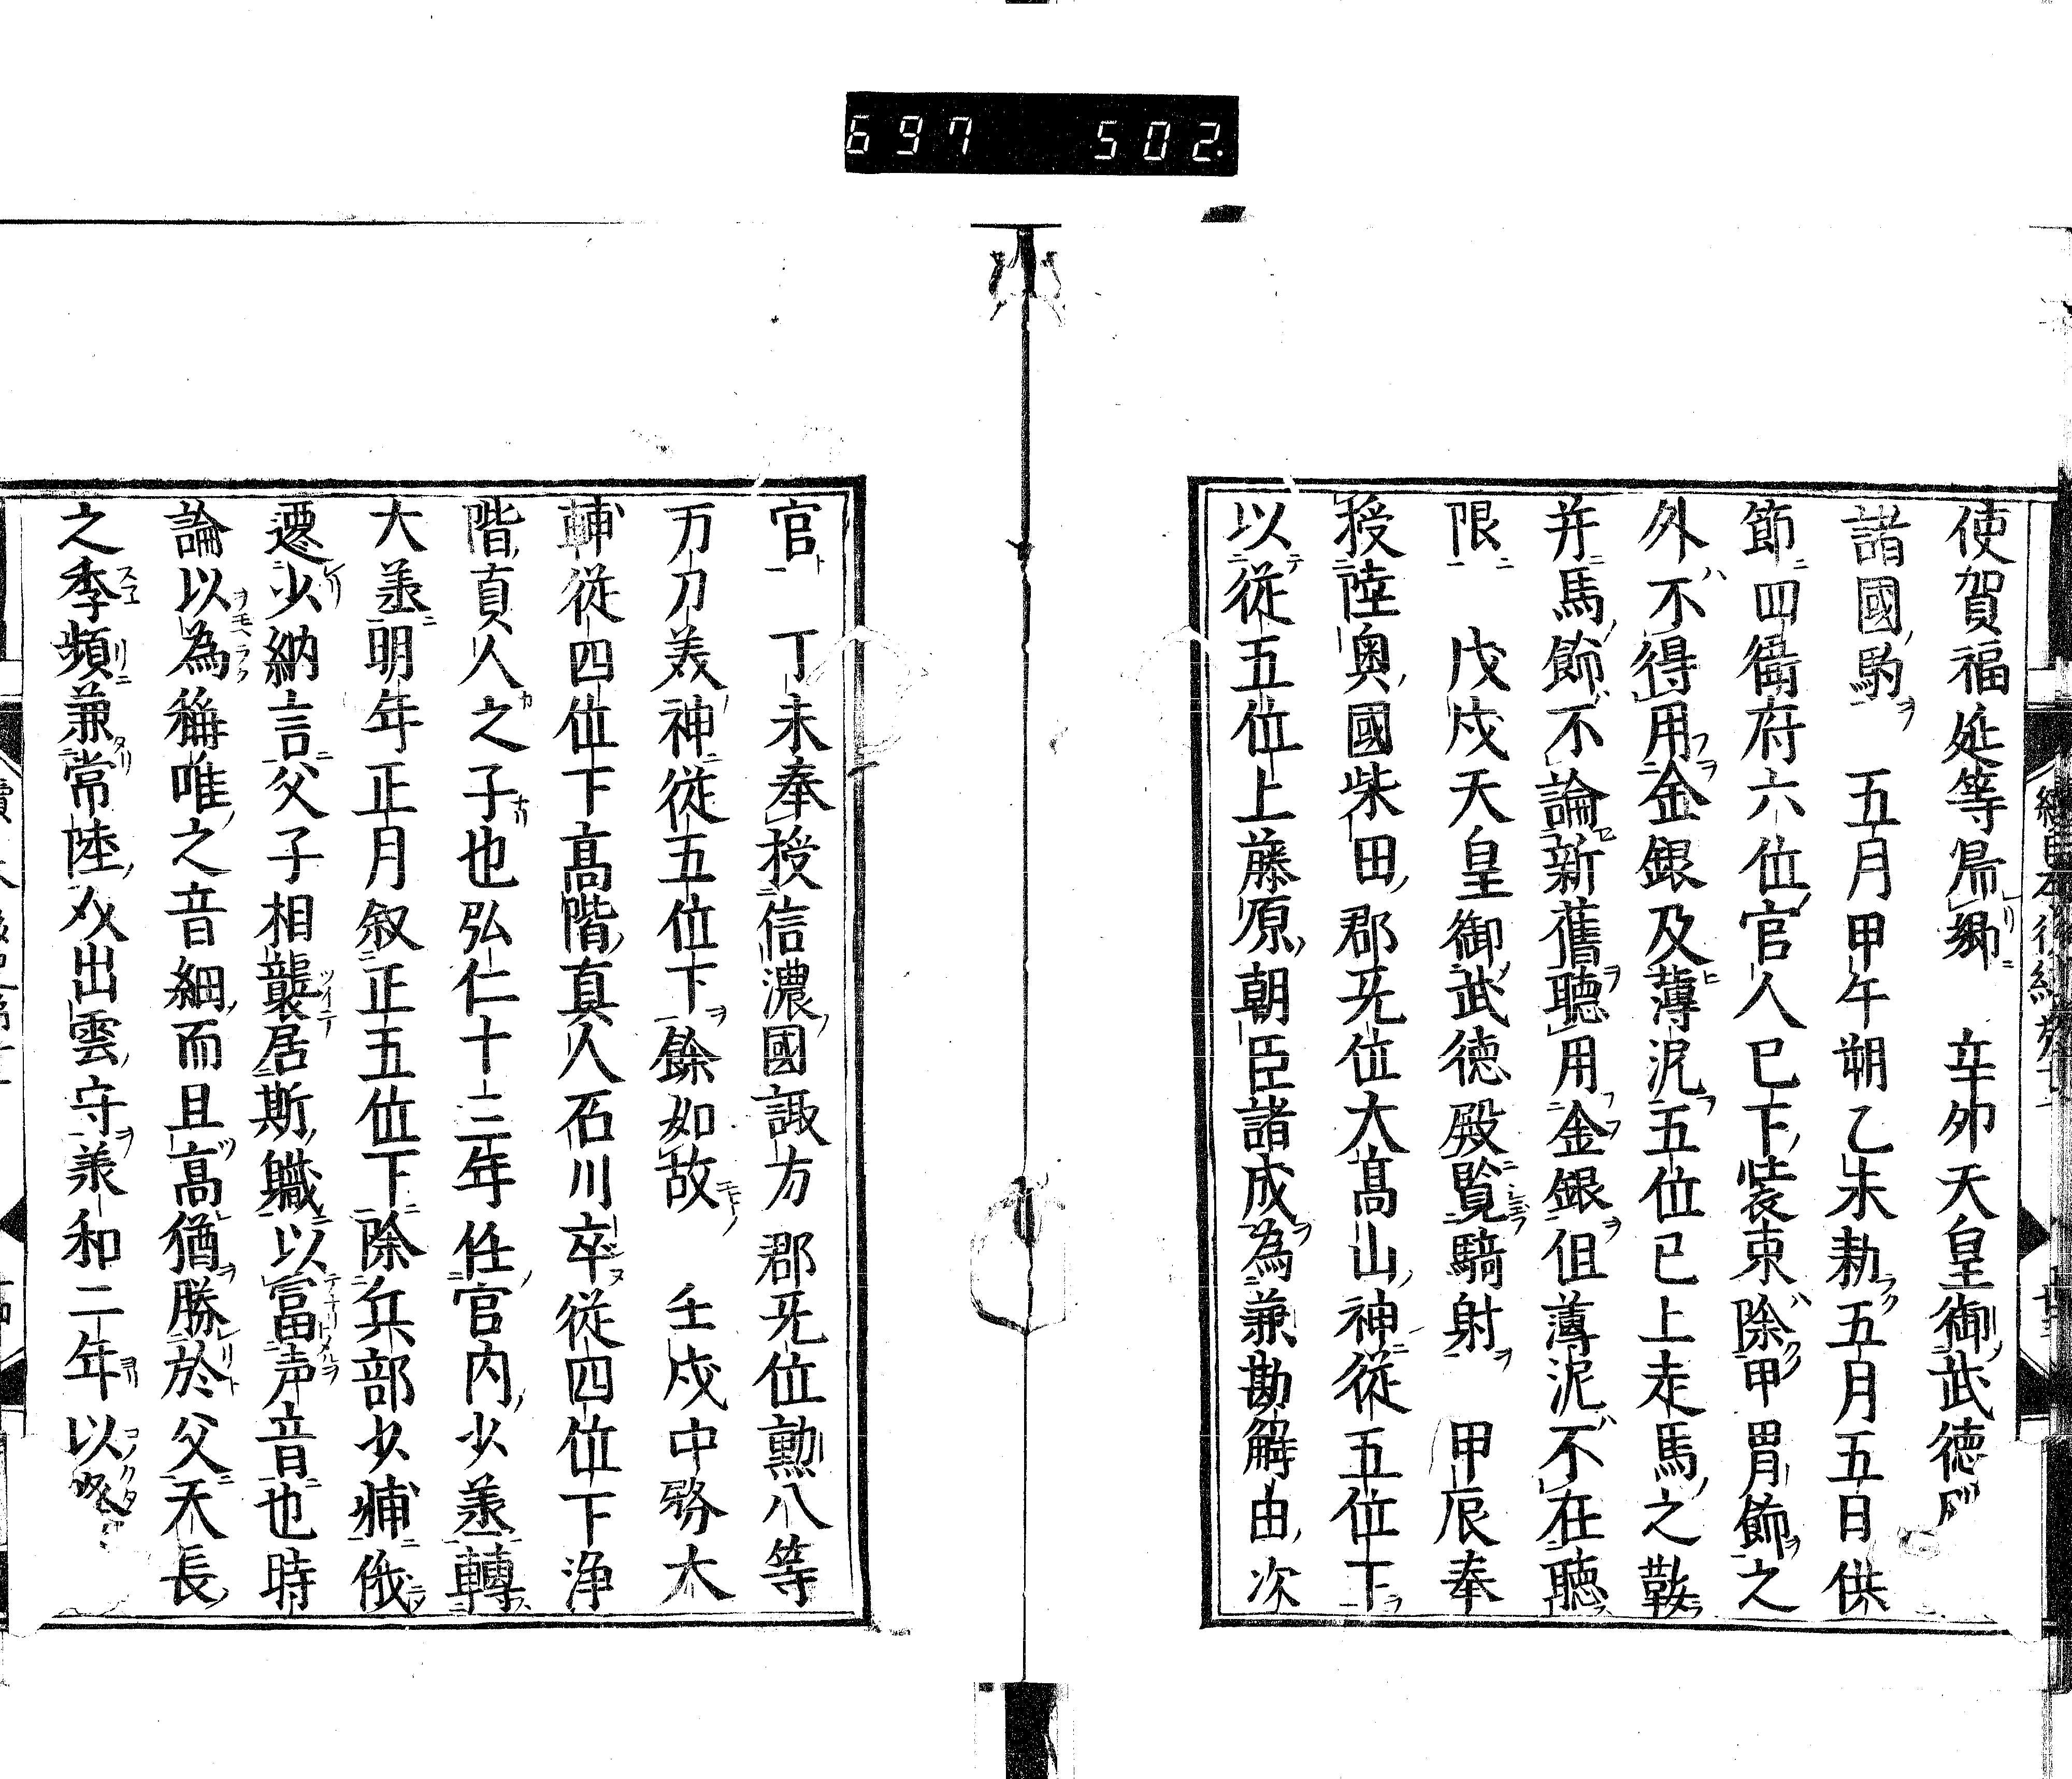 697 502.
使賀福延等帰郷 辛夘天皇御武德
諸國駒 五月甲午朔乙未勅五月五日供
節四衛府六位官人已下裝束除甲冑飾之
外不得用金銀及薄泥五位已上走馬之鞍
并馬飾不論新舊聽用金銀但薄泥不在聽
限 戊戌天皇御武德殿覧騎射 甲辰奉
授陸奥國柴田郡无位大髙山神從五位下
以從五位上藤原朝臣諸成為兼勘解由次
官 丁未奉授信濃國諏方郡无位勲八等
万刀美神從五位下餘如故 壬戌中務大
輔從四位下髙階真人石川卒從四位下浄
階真人之子也弘仁十二年任官内少丞轉
大丞明年正月叙正五位下除兵部少輔俄
遷少納言父子相襲居斯職以富声音也時
論以為稱唯之音細而且髙猶勝於父天長
之季頻兼常陸出雲守承和二年以